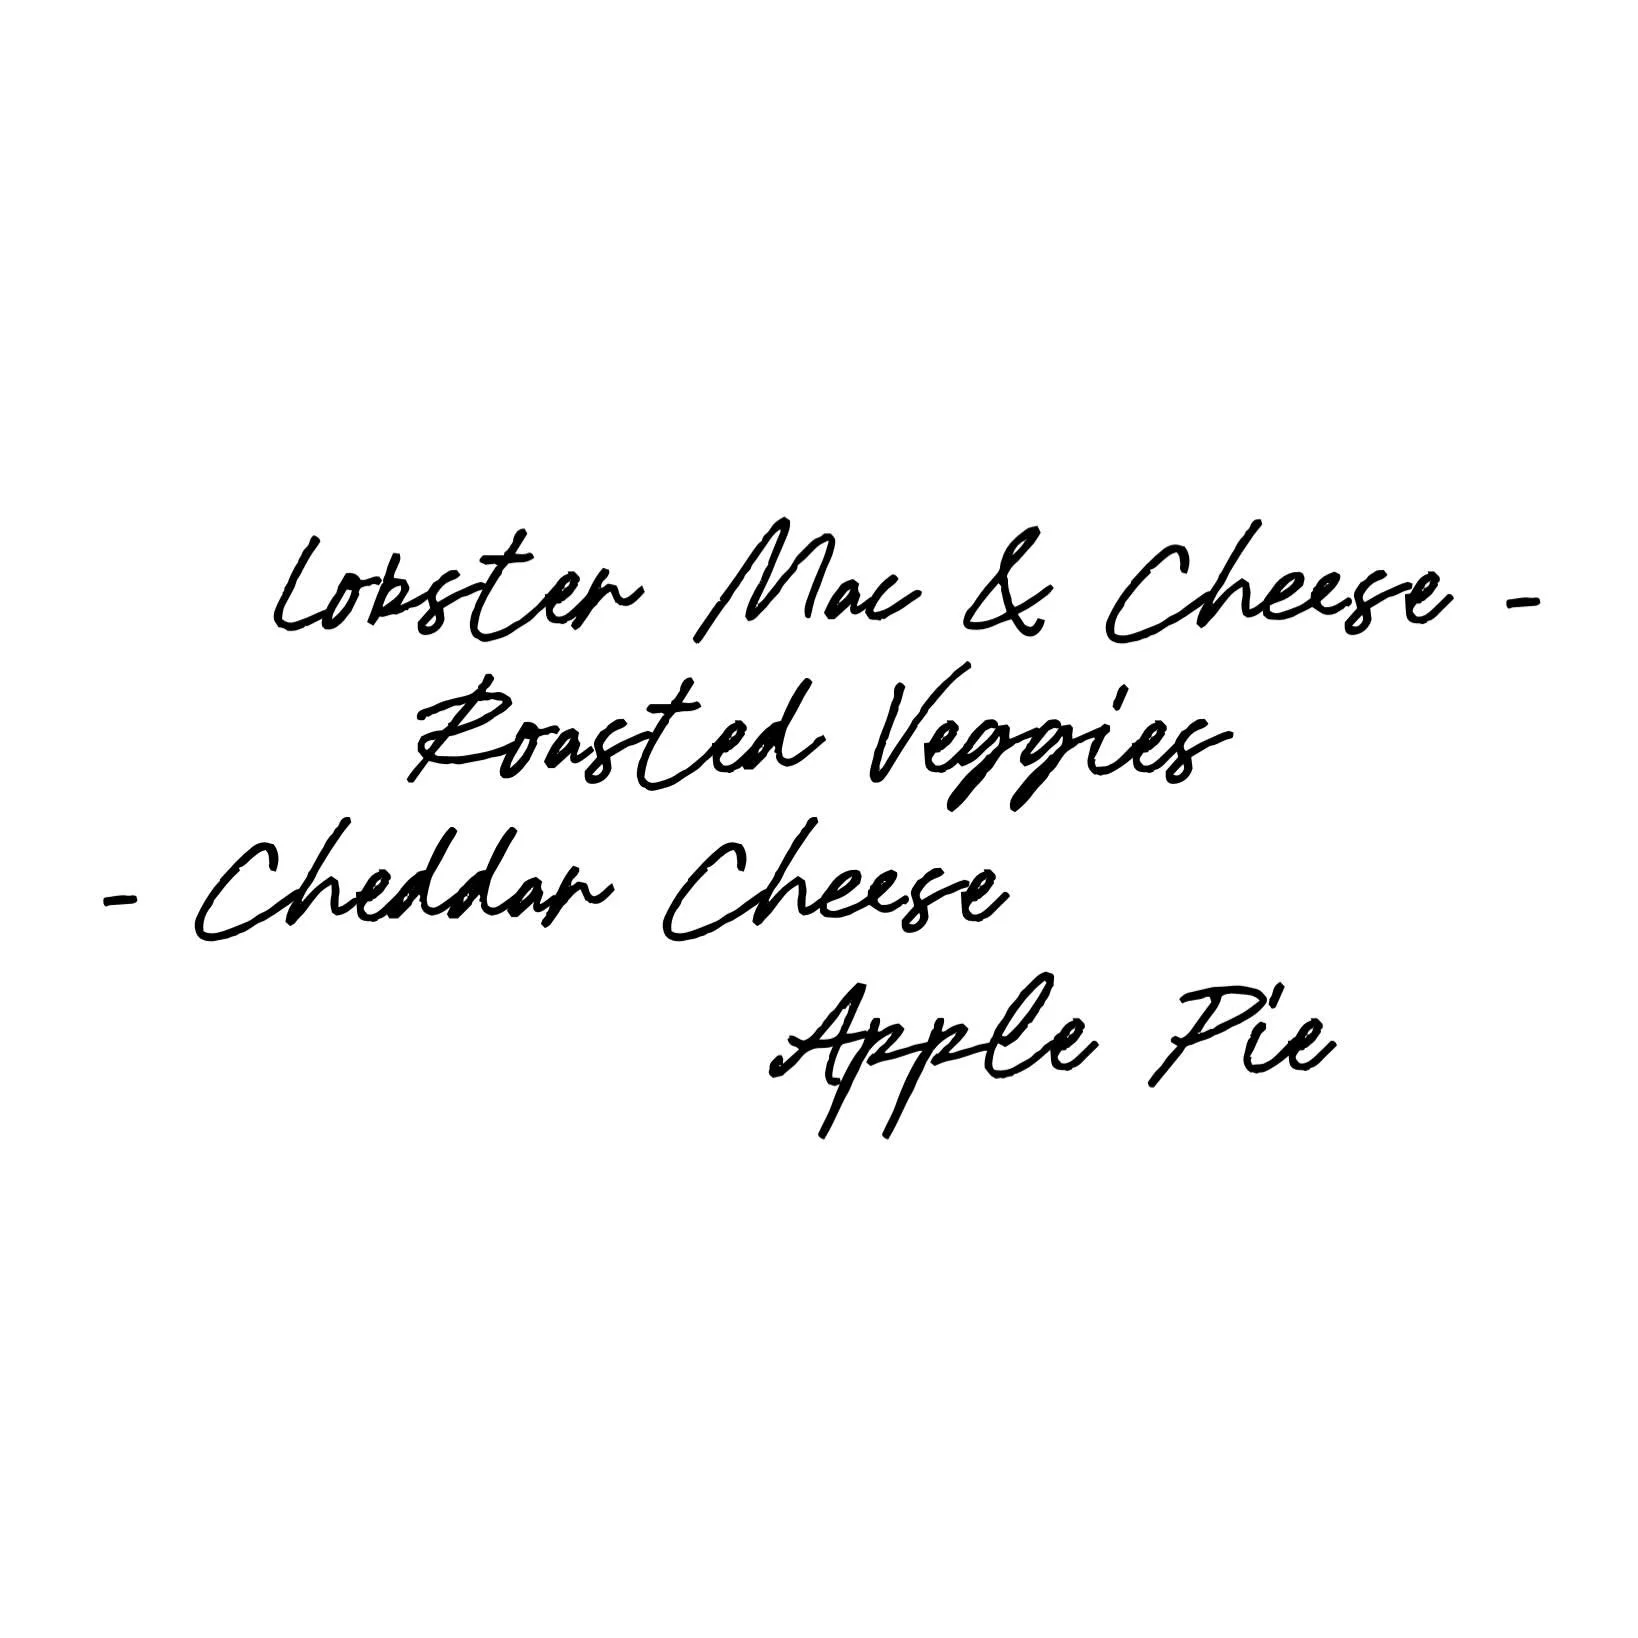 Lobster Mac & Cheese -
Roasted Veggies
- Cheddar Cheese
Apple Pie